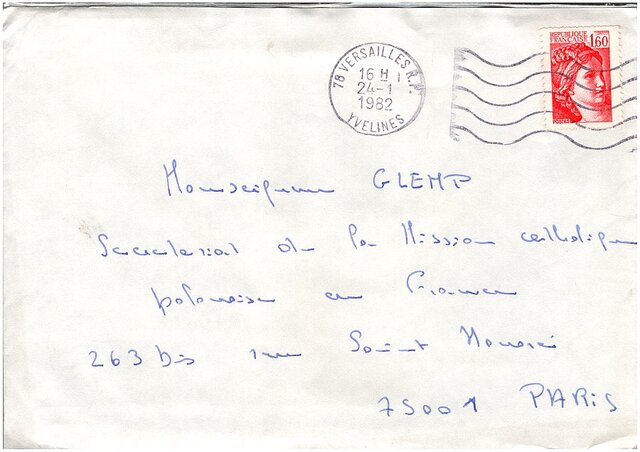 REPUBLIQUE
FRANÇAISE 1,60
POSTES
78 VERSAILLES R.P.
16 H
24-1
1982
YVELINES
Monseigneur GLEMP
Secretariat de la Mission catholique
polonaise en France
263 bis rue Saint Honoré
75001 PARIS